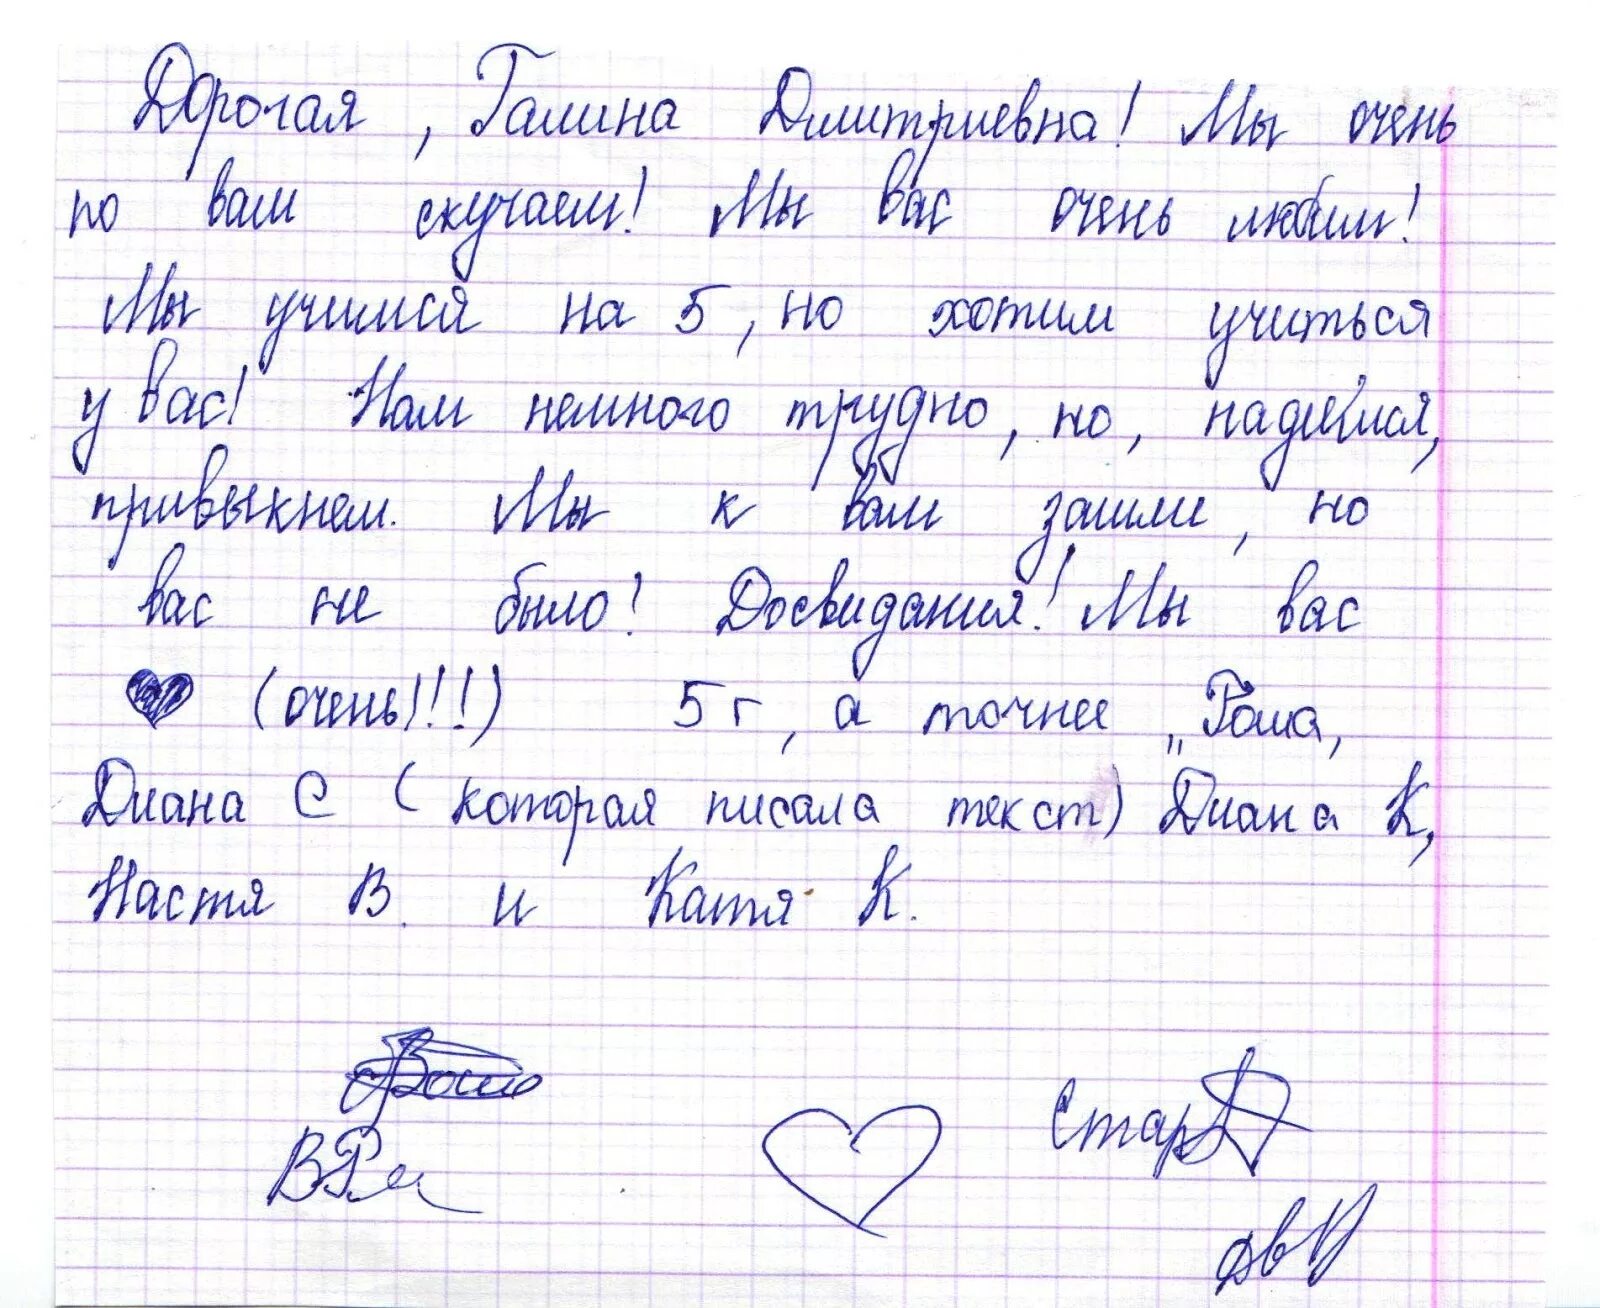 Дорогая, Галина Дмитриевна! Мы очень
по вам скучаем! Мы вас очень любим!
Мы учимся на 5, но хотим учиться
у вас! Нам немного трудно, но, надеимся,
привыкнем. Мы к вам зашли, но
вас не было! Досвидания! Мы вас
(очень!!!) 5г, а точнее „Рома,
Диана С (которая писала текст) Диана К,
Настя В. и Катя К.